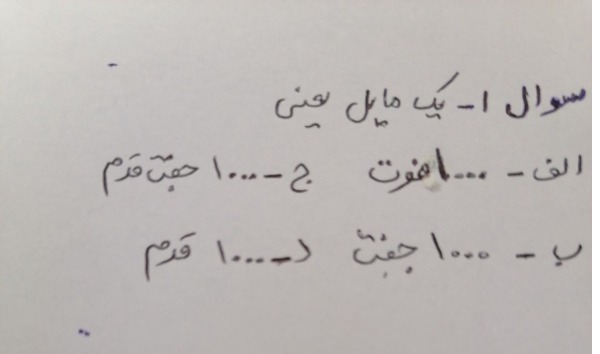 سوال ۱- یک مایل یعنی
الف - ۱۰۰۰ فوت ج - ۱۰۰۰ جفت قدم
ب - ۱۰۰۰ جفت د - ۱۰۰۰ قدم